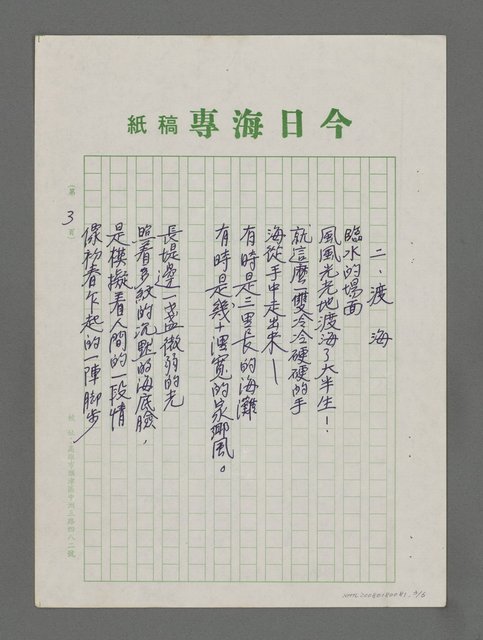 今日海專 稿紙
二、渡海
臨水的場面
風風光光地渡海了大半生！
就這麼一雙冷冷硬硬的手
海從手中走出來—
有時是三里長的海灘
有時是幾十浬寬的家鄉風。
長堤邊一盞微弱的光
照著多紋的沉默的海底臉，
是模擬着人間的一段情
像初春乍起的一陣腳步
（第3頁）
校址：高雄市旗津區中洲三路四八二號